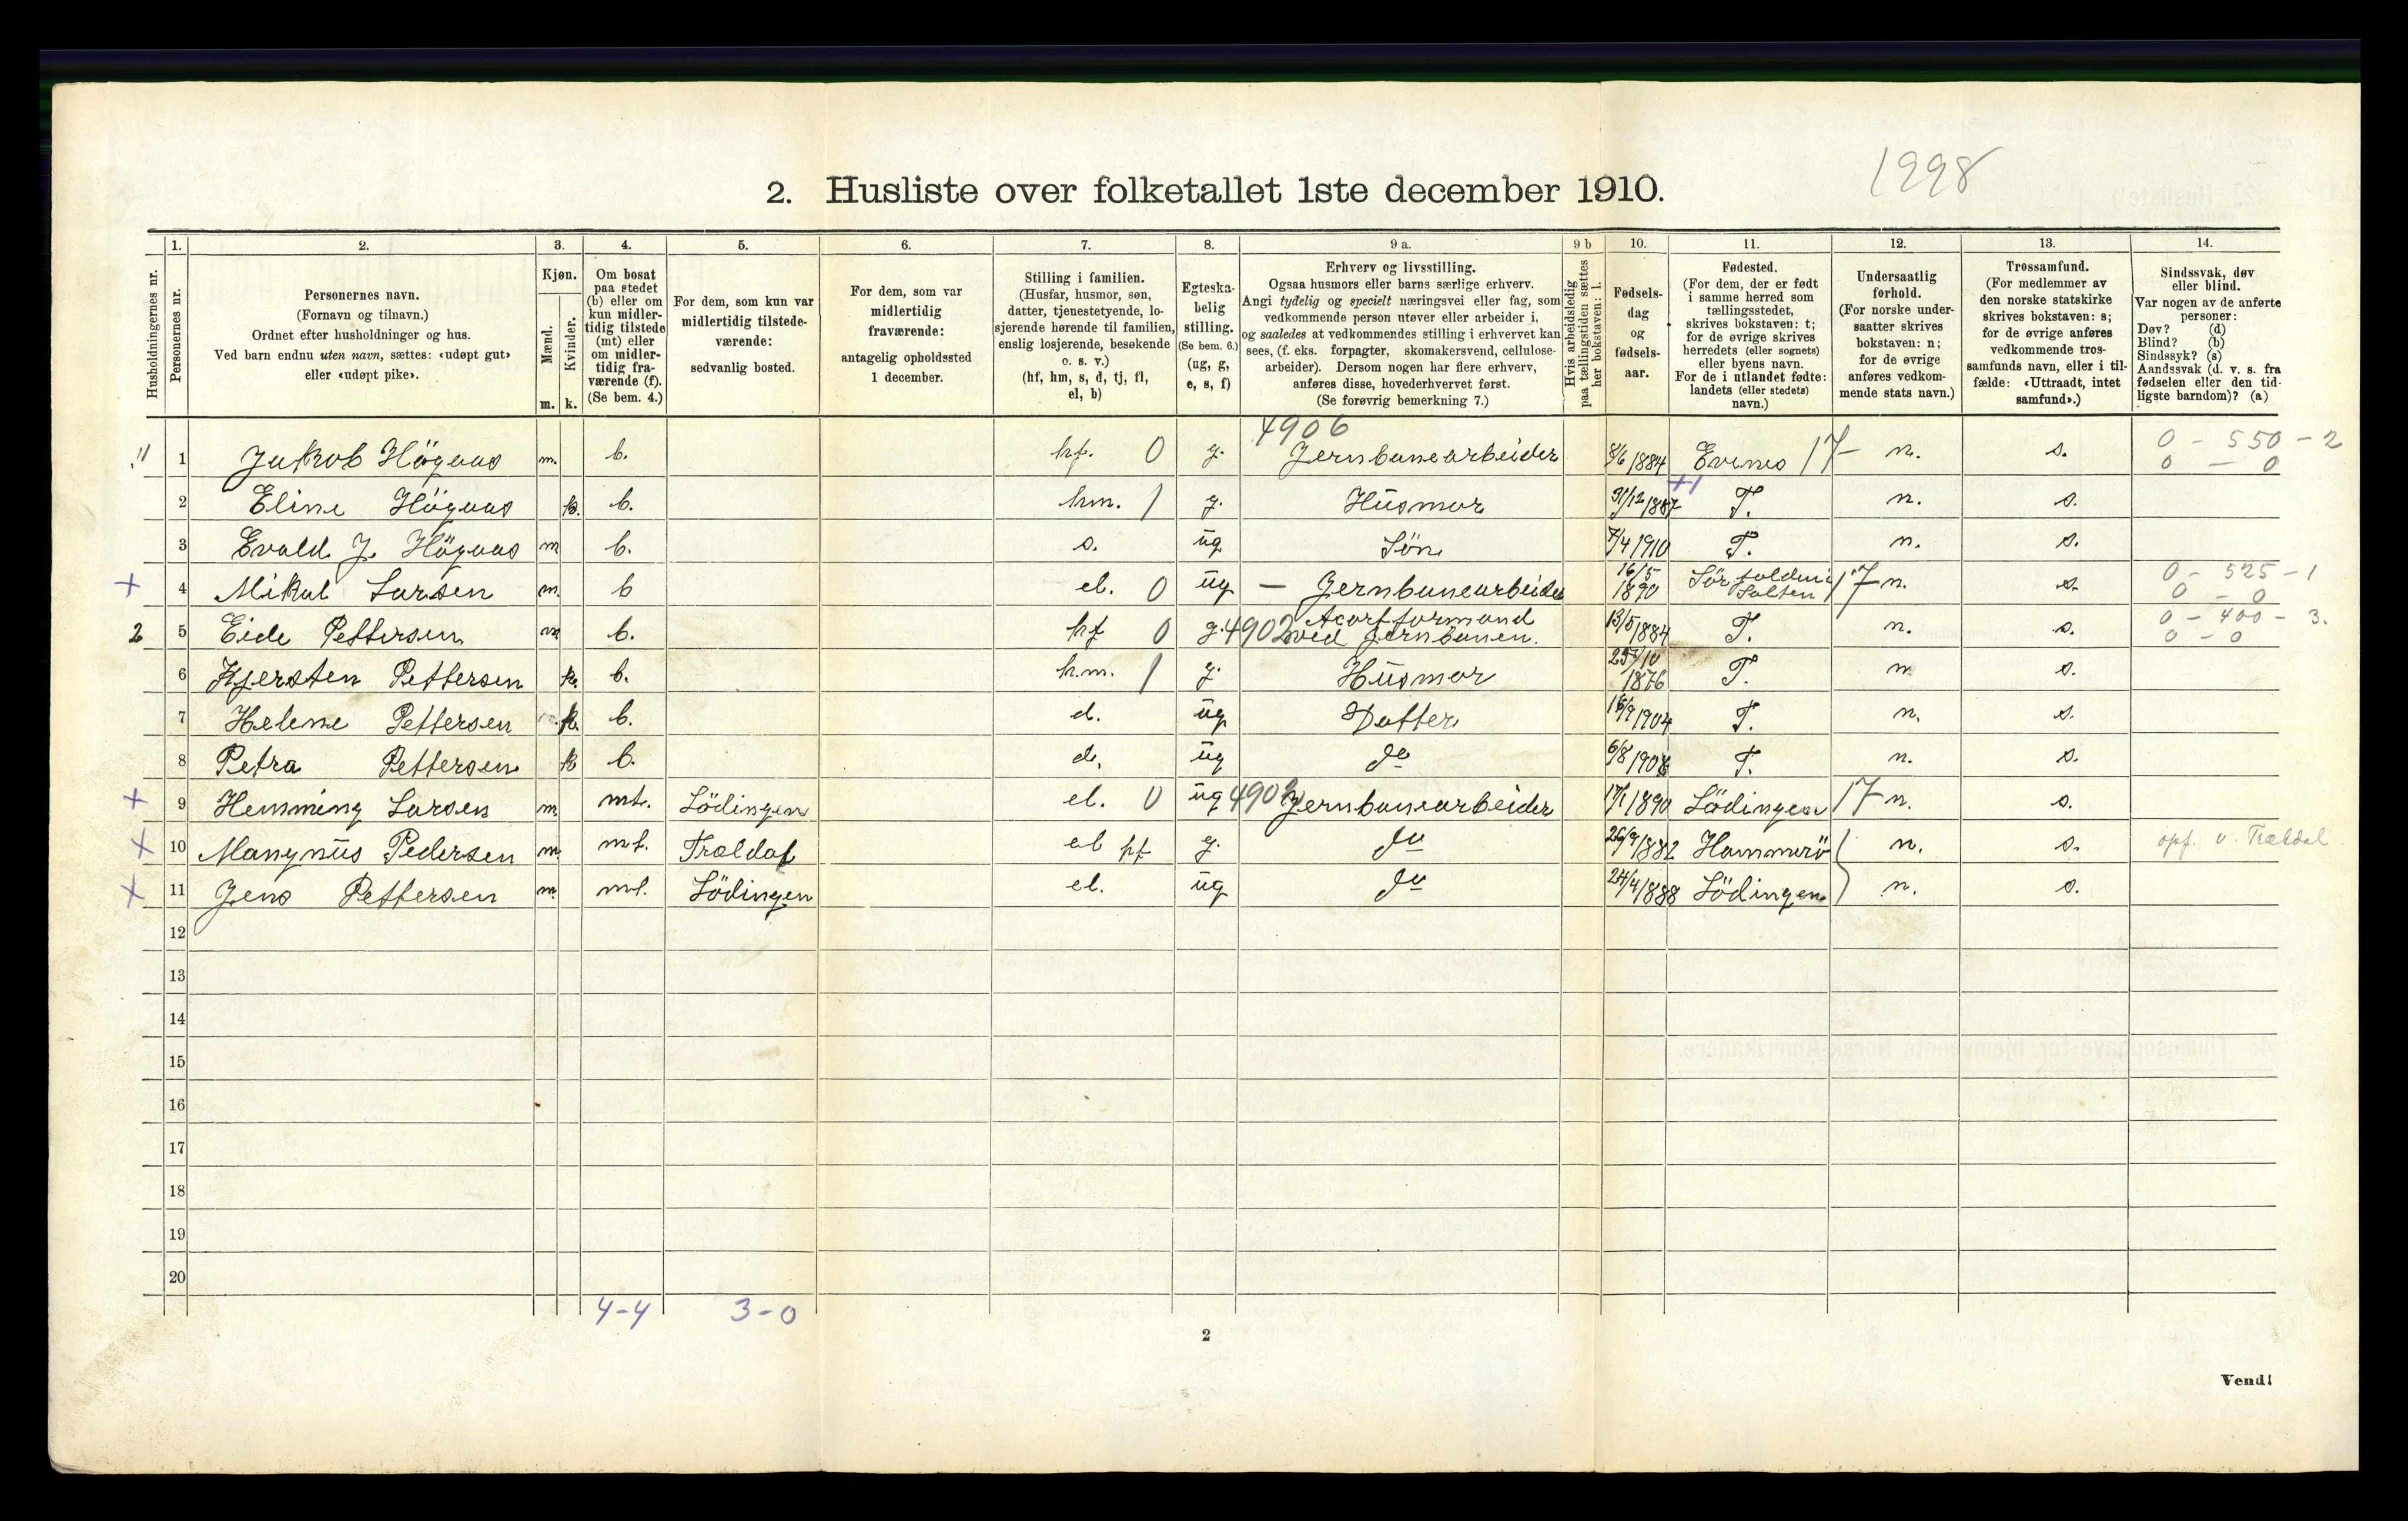 1998
2. Husliste over folketallet 1ste december 1910.
Husholdningernes nr.
1. Personernes nr.
2. Personernes navn.
(Fornavn og tilnavn.)
Ordnet efter husholdninger og hus.
Ved barn endnu uten navn, sættes: «udøpt gut»
eller «udøpt pike».
3. Kjøn.
Mænd. m.
Kvinder. k.
4. Om bosat
paa stedet
(b) eller om
kun midler-
tidig tilstede
(mt) eller
om midler-
tidig fra-
værende (f).
(Se bem. 4.)
5. For dem, som kun var
midlertidig tilstede-
værende:
sedvanlig bosted.
6. For dem, som var
midlertidig
fraværende:
antagelig opholdssted
1 december.
7. Stilling i familien.
(Husfar, husmor, søn,
datter, tjenestetyende, lo-
sjerende hørende til familien,
enslig losjerende, besøkende
o. s. v.)
(hf, hm, s, d, tj, fl,
el, b)
8. Egteska-
belig
stilling.
(Se bem. 6.)
(ug, g,
e, s, f)
9 a. Erhverv og livsstilling.
Ogsaa husmors eller barns særlige erhverv.
Angi tydelig og specielt næringsvei eller fag, som
vedkommende person utøver eller arbeider i,
og saaledes at vedkommendes stilling i erhvervet kan
sees, (f. eks. forpagter, skomakersvend, cellulose-
arbeider). Dersom nogen har flere erhverv,
anføres disse, hovederhvervet først.
(Se forøvrig bemerkning 7.)
9 b Hvis arbeidsledig
paa tællingstiden sættes
her bokstaven: l.
10. Fødsels-
dag
og
fødsels-
aar.
11. Fødested.
(For dem, der er født
i samme herred som
tællingsstedet,
skrives bokstaven: t;
for de øvrige skrives
herredets (eller sognets)
eller byens navn.
For de i utlandet fødte:
landets (eller stedets)
navn.)
12. Undersaatlig
forhold.
(For norske under-
saatter skrives
bokstaven: n;
for de øvrige
anføres vedkom-
mende stats navn.)
13. Trossamfund.
(For medlemmer av
den norske statskirke
skrives bokstaven: s;
for de øvrige anføres
vedkommende tros-
samfunds navn, eller i til-
fælde: «Uttraadt, intet
samfund».)
14. Sindssvak, døv
eller blind.
Var nogen av de anførte
personer:
Døv? (d)
Blind? (b)
Sindssyk? (s)
Aandssvak (d. v. s. fra
fødselen eller den tid-
ligste barndom)? (a)
4906
1 Jakob Högaas m. b. hf. 0 g. Jernbanearbeider 8/6 1884 Evenes 17 n. s. 0 - 550 - 2
0 - 0
2 Eline Högaas k. b. hm. 1 g. Husmor 31/12 1887 +1 T. n. s.
3 Evald J. Högaas m b. s. ug Sön 7/4 1910 T. n. s.
+ 4 Mikal Larsen m. b el. 0 ug — Jernbanearbeider 16/5 1890 Sörfolden i Salten 17 n. s. 0 - 525 - 1
0 - 0
2 5 Eide Pettersen m. b. hf 0 g. 4902 Acortformand
ved Jernbanen. 13/5 1884 T. n. s. 0 - 400 - 3.
0 - 0
6 Kjersten Pettersen k. b. h.m. 1 g. Husmor 25/10 1876 T. n s.
7 Helene Pettersen k. b. d. ug Datter 16/9 1904 T. n. s.
8 Petra Pettersen k b. d. ug do 6/8 1908 T. n. s.
+ 9 Hemming Larsen m. mt. Lödingen el. 0 ug 4902 Jernbanearbeider 17/1 1890 Lödingen 17 n. s.
+ 10 Mangnus Pedersen m mt. Trældal el hf g. do 26/9 1882 Hammerö n. s. opf. v. Trældal
+ 11 Jens Pettersen m. mt. Lödingen el. ug do 24/4 1888 Lödingen n. s.
12
13
14
15
16
17
18
19
20
4-4 3-0
2
Vend!